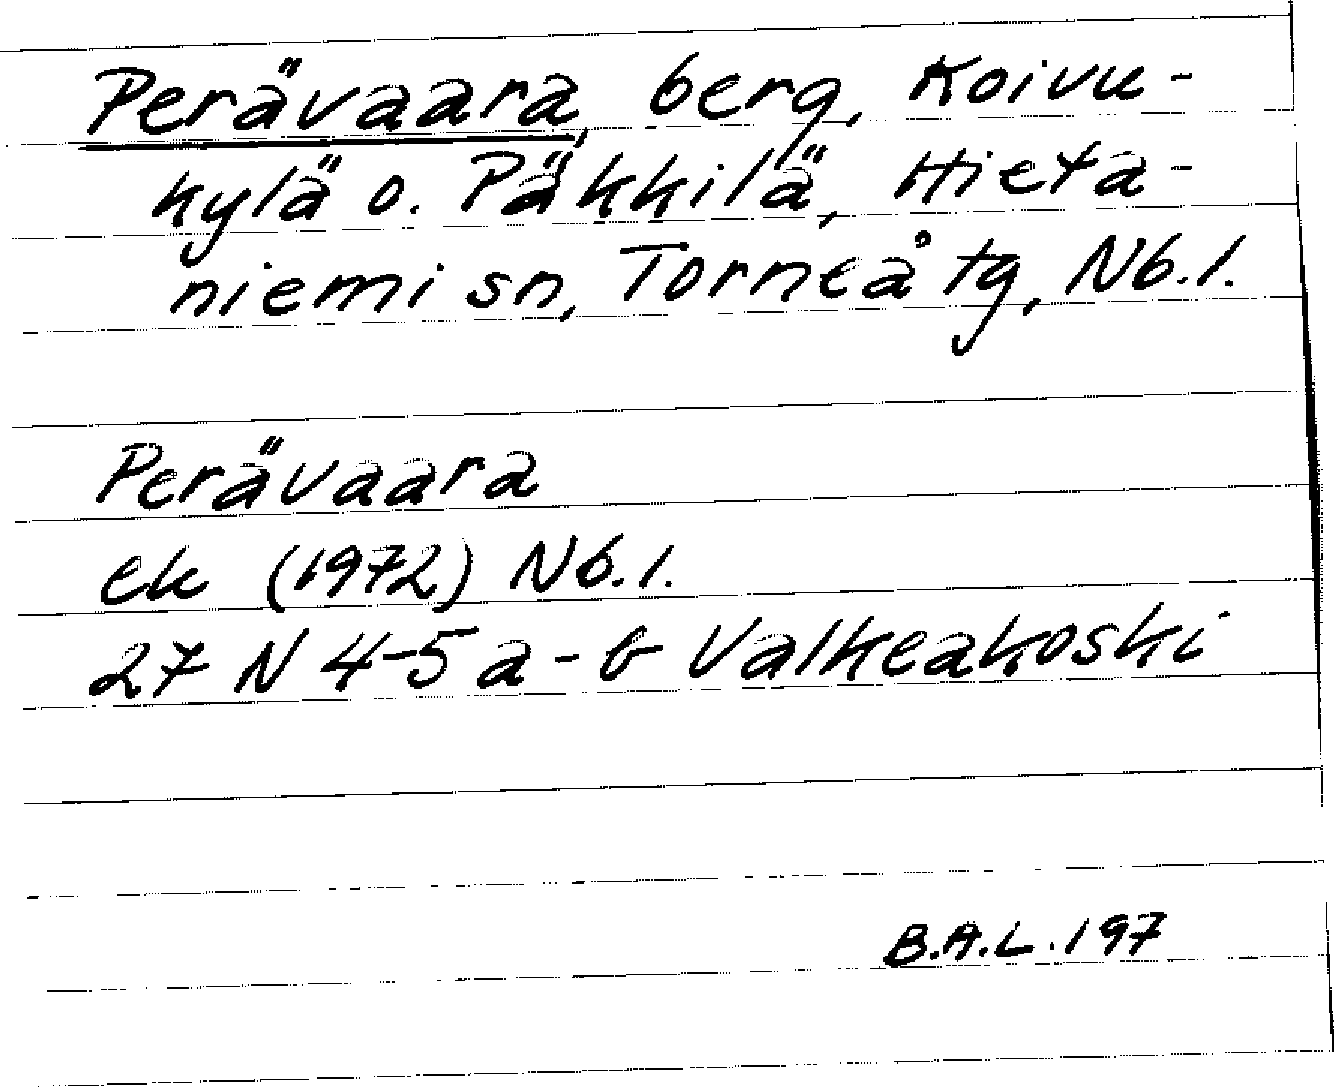 Perävaara, berg, Koivu-
kylä o. Päkkilä, Hieta-
niemi sn, Torneå tg, Nb.l.
Perävaara
ek (1972) Nb.l.
27 N 4-5 a-b Valkeakoski
B.A.L. 197